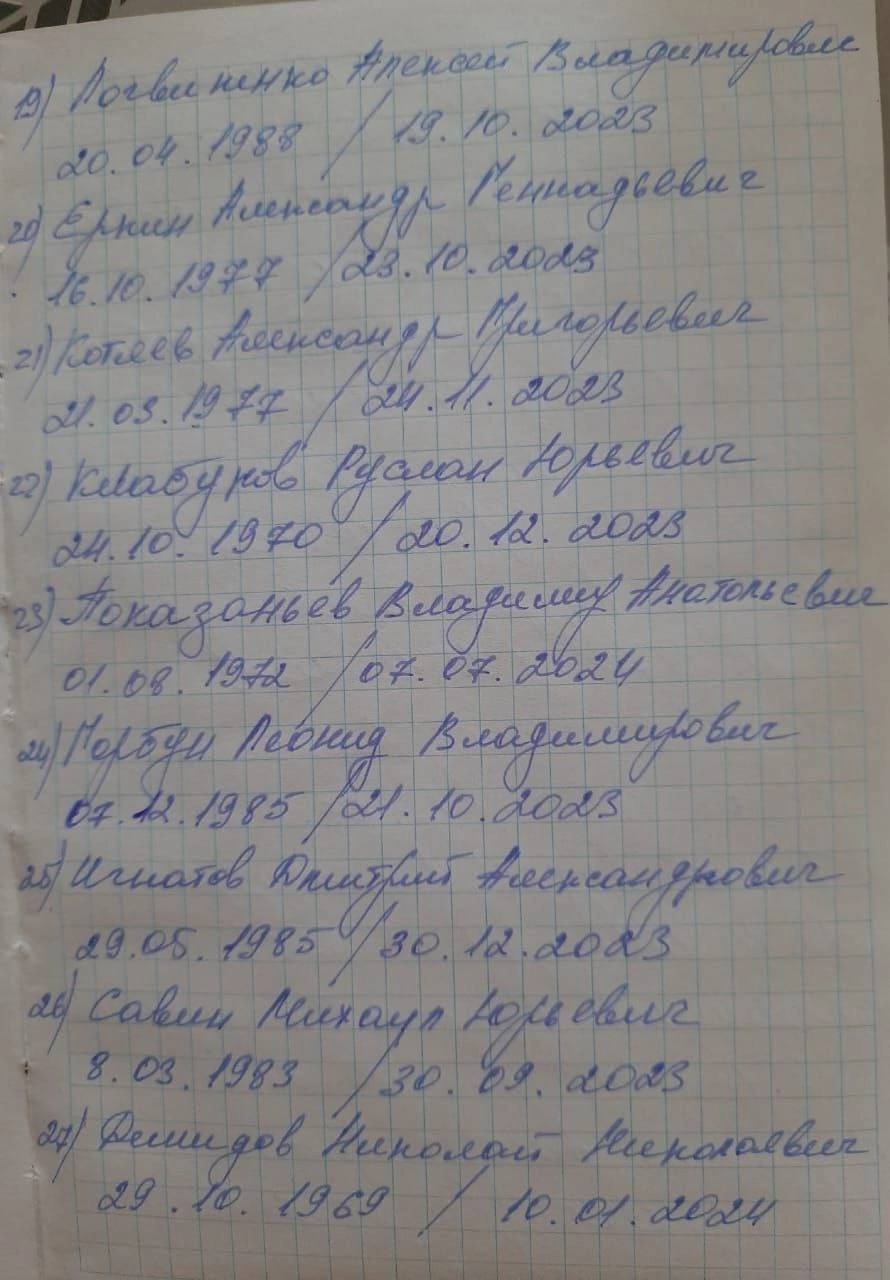 19) Логвиненко Алексей Владимирович
20.04.1988 / 19.10.2023
20) Еркин Александр Геннадьевич
16.10.1977 / 23.10.2023
21) Котлев Александр Григорьевич
21.03.1977 / 24.11.2023
22) Клабуков Руслан Юрьевич
24.10.1970 / 20.12.2023
23) Показаньев Владимир Анатольевич
01.08.1972 / 07.07.2024
24) Горбун Леонид Владимирович
07.12.1985 / 21.10.2023
25) Игнатов Дмитрий Александрович
29.05.1985 / 30.12.2023
26) Савин Михаил Юрьевич
8.03.1983 / 30.09.2023
27) Демидов Николай Николаевич
29.10.1969 / 10.01.2024